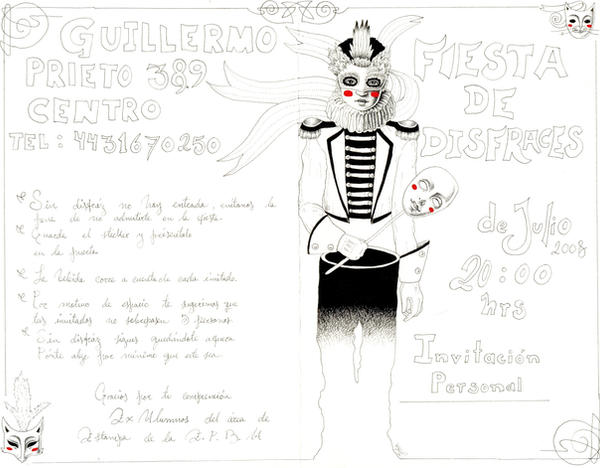 GUILLERMO
PRIETO 389
CENTRO
TEL: 4431670250
Sin disfráz no hay entrada, evítanos la
pena de no admitirte en la fiesta.
Guarda el sticker y preséntalo
en la puerta
La bebida corre a cuenta de cada invitado
Por motivo de espacio te sugerimos que
los invitados no sobrepasen 3 personas
Sin disfráz sigues quedándote afuera
Gracias por tu comprensión
Ex Alumnos del área de
Estampa de la
FIESTA
DE
DISFRACES
de Julio
2008
20:00
hrs
Invitación
Personal